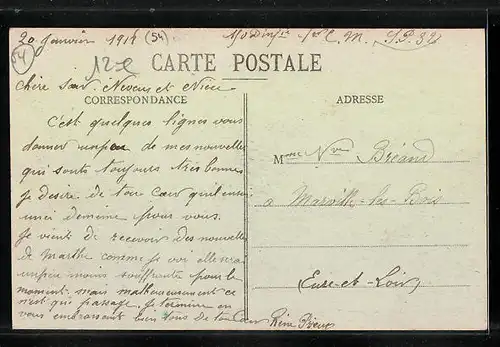 20 Janvier 1914 (54) 150 Dinfie C. M. S.P. 32
54
12e
CARTE POSTALE
Chère Sœur Neveux et Nièce
CORRESPONDANCE
ADRESSE
C'est quelques lignes vous
donner un peu de mes nouvelles
qui sont toujours très bonnes
Je désire de tou Cœur qu'il en soi
de meme pour vous.
Je vient de recevoir des nouvelles
de Marthe comme je voi elle serai
un peu moins souffrante pour le
moment. mais malheureusement ce
n'est qui passage. Je termine en
vous embrassant bien tous de tou Cœur
René
Mme Vve Bréand
a Marville-les-Bois
(Eure-et-Loir)